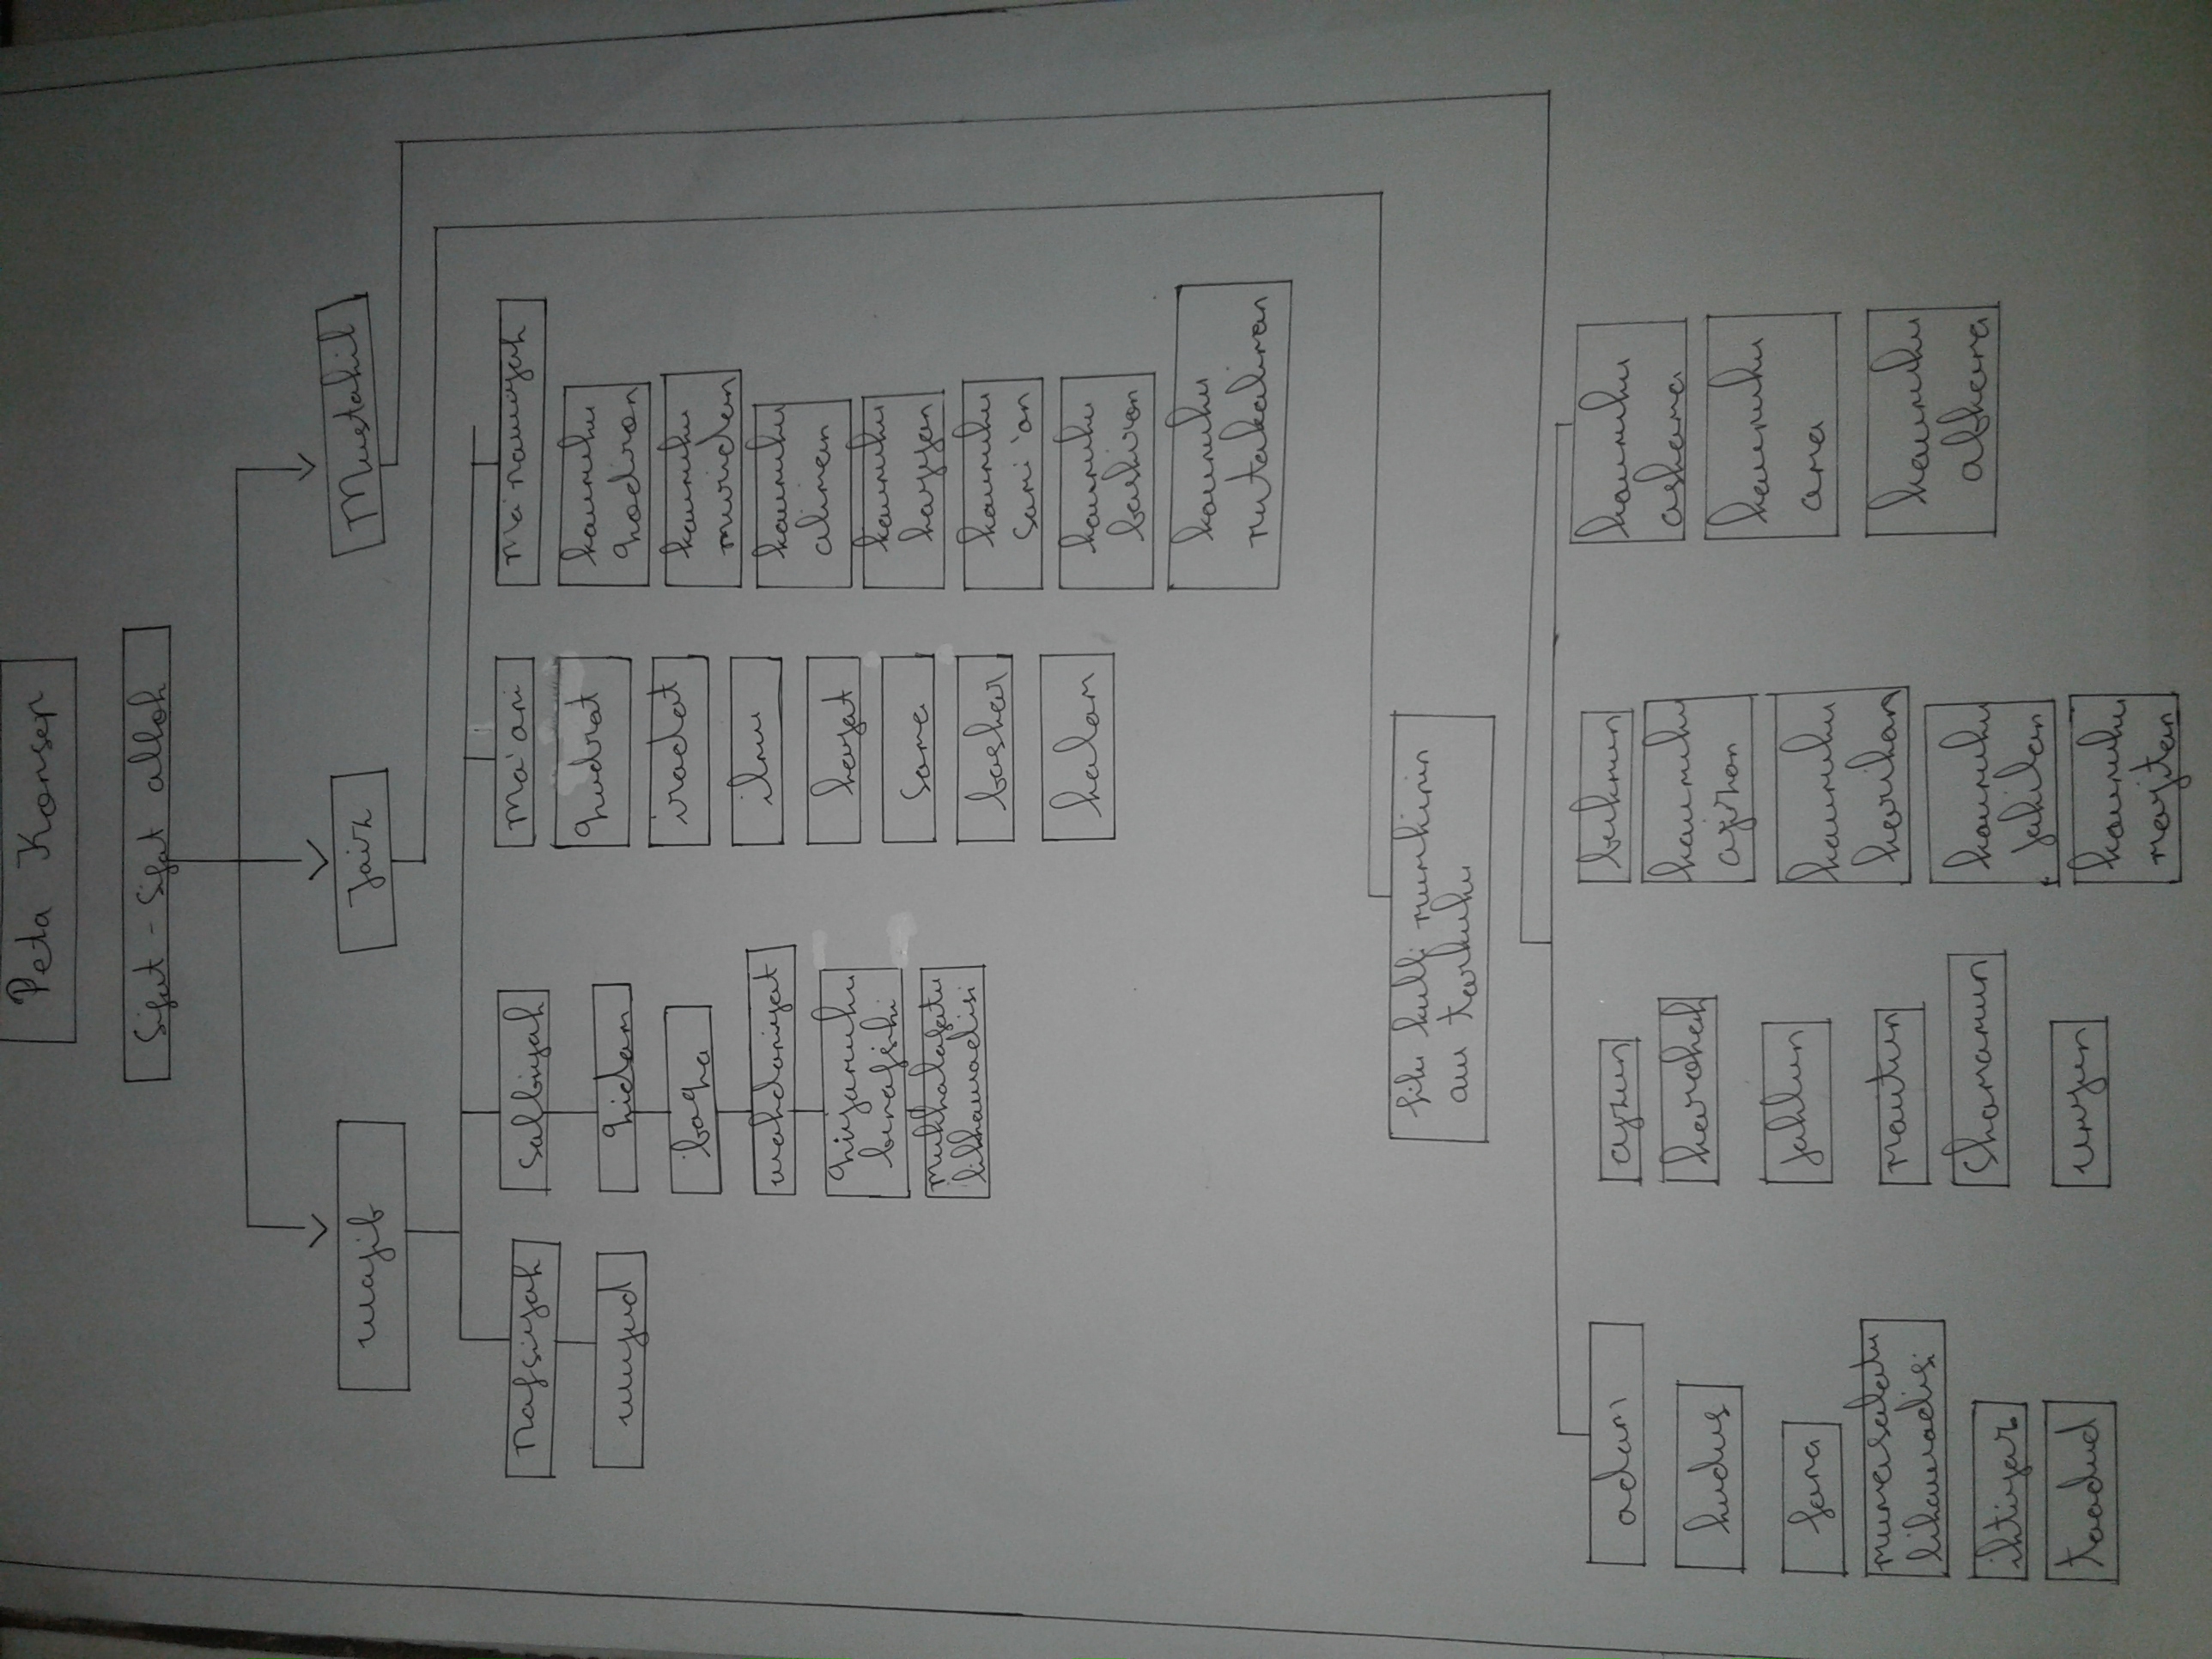 Peta Konsep
Sifat - Sifat alloh
wajib
Jaiz
Mustahil
Nafsiyah
Salbiyah
Ma'ani
Ma'nawiyah
wujud
qidam
baqa
wahdaniyat
qiyamuhu
binafsihi
mukhalafatu
lilkhawadisi
qudrat
iradat
ilmu
hayat
sama
bashar
kalam
kaunuhu
qodiron
kaunuhu
muridan
kaunuhu
aliman
kaunuhu
hayyan
kaunuhu
sami'an
kaunuhu
bashiron
kaunuhu
mutakaliman
filu kulli mumkinin
au tarkuhu
adam
hudus
fana
mumasalatu
lihawadisi
ihtiyaz
taadud
ajzun
karohah
jahlun
mautun
shamamun
umyun
bukmun
kaunuhu
ajizan
kaunuhu
karihan
kaunuhu
jahilan
kaunuhu
mayitan
kaunuhu
ashama
kaunuhu
ama
kaunuhu
abkama